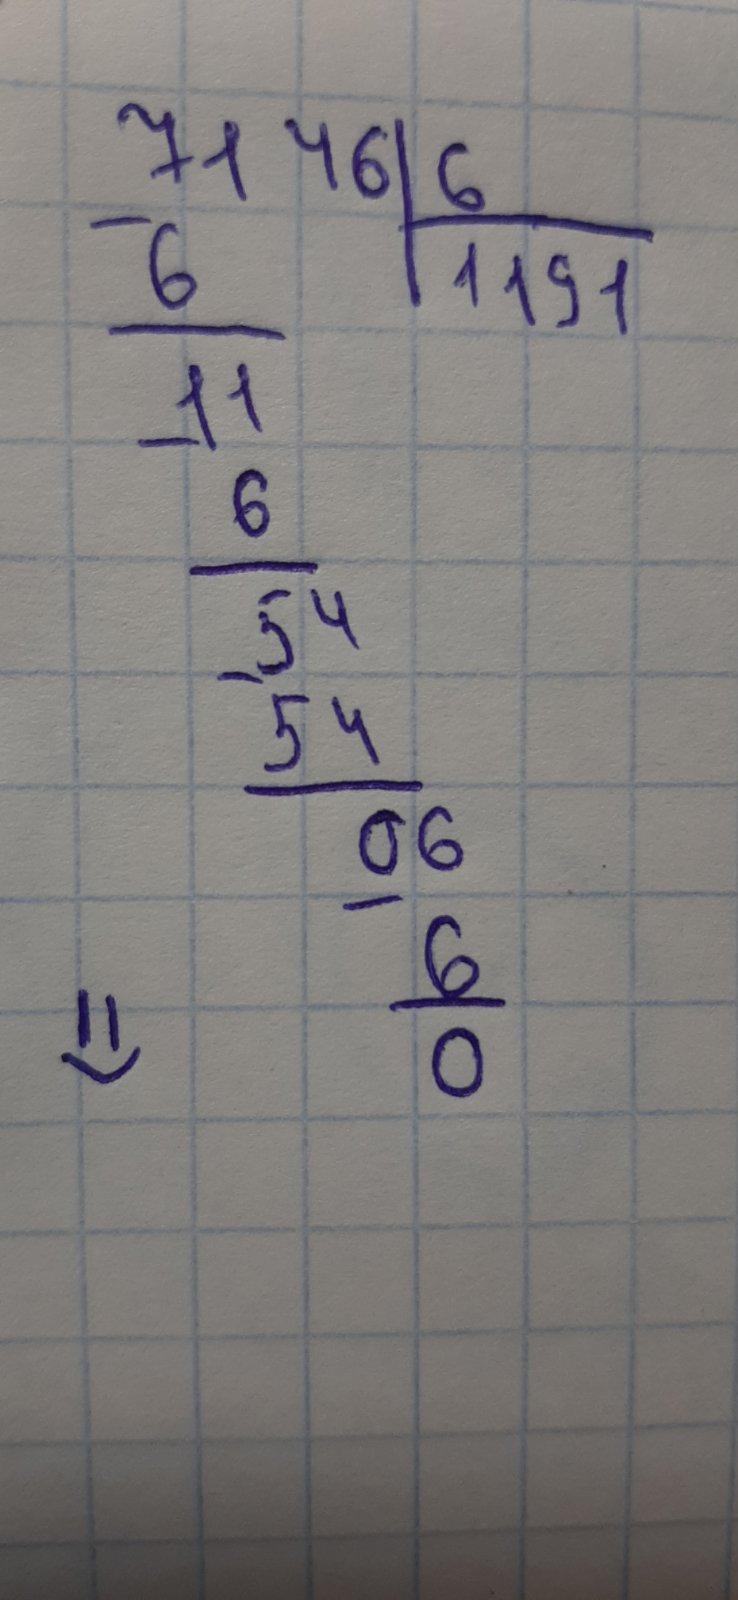 7146|6
- 6 1191
11
- 6
54
- 54
06
- 6
0
=)